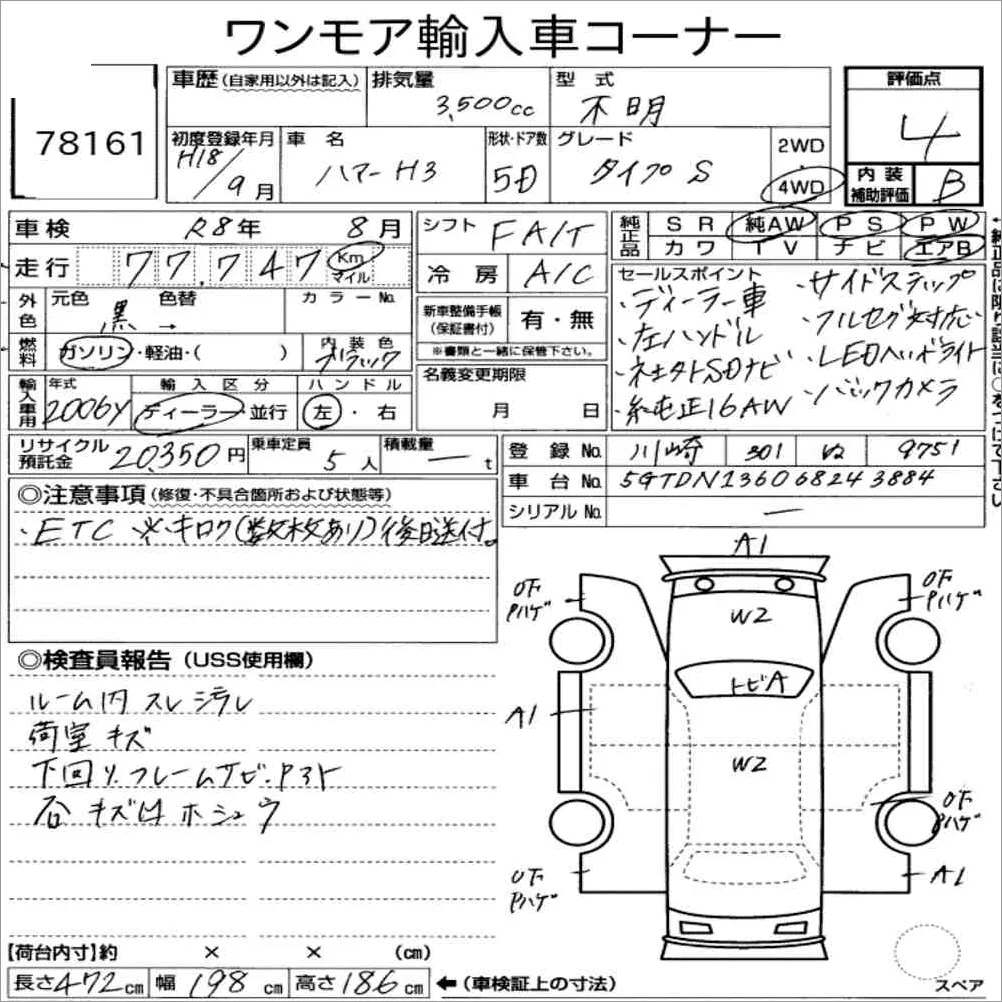 ワンモア輸入車コーナー
78161
車歴 (自家用以外は記入) 排気量 3,500cc 型式 不明
評価点 4
初度登録年月 H18/9月 車名 ハマーH3 形状・ドア数 5D グレード タイプS 2WD 4WD
内装補助評価 B
車検 R8年 8月 シフト FA/T
純正品 SR 純AW PS PW
カワ TV ナビ エアB
走行 77,747 Km マイル
冷房 A/C
外色 元色 黒 色替 → カラーNo.
新車整備手帳 (保証書付) 有・無
※書類と一緒に保管下さい。
燃料 ガソリン・軽油・( ) 内装色 ブラック
セールスポイント
・ディーラー車
・左ハンドル
・ネキストSDナビ
・純正16AW
・サイドステップ
・フルセグ対応
・LEDヘッドライト
・バックカメラ
輸入車用 年式 2006y 輸入区分 ディーラー・並行 ハンドル 左・右
名義変更期限 月 日
リサイクル預託金 20,350円 乗車定員 5人 積載量 ー t
登録No. 川崎 301 ぬ 9751
車台No. 5GTDN136068243884
シリアルNo. ー
◎注意事項 (修復・不具合箇所および状態等)
・ETC ※キロク(数枚あり)後日送付。
◎検査員報告 (USS使用欄)
ルーム内 スレ シミ汚レ
荷室 キズ
下回リ.フレームサビ・Pヌト
谷 キズ ホシュウ
A1
OFPハゲ
OFPハゲ
W2
トビA
A1
W2
OFPハゲ
OFPハゲ
A1
スペア
【荷台内寸】約 × × (cm)
長さ472cm 幅198cm 高さ186cm ←(車検証上の寸法)